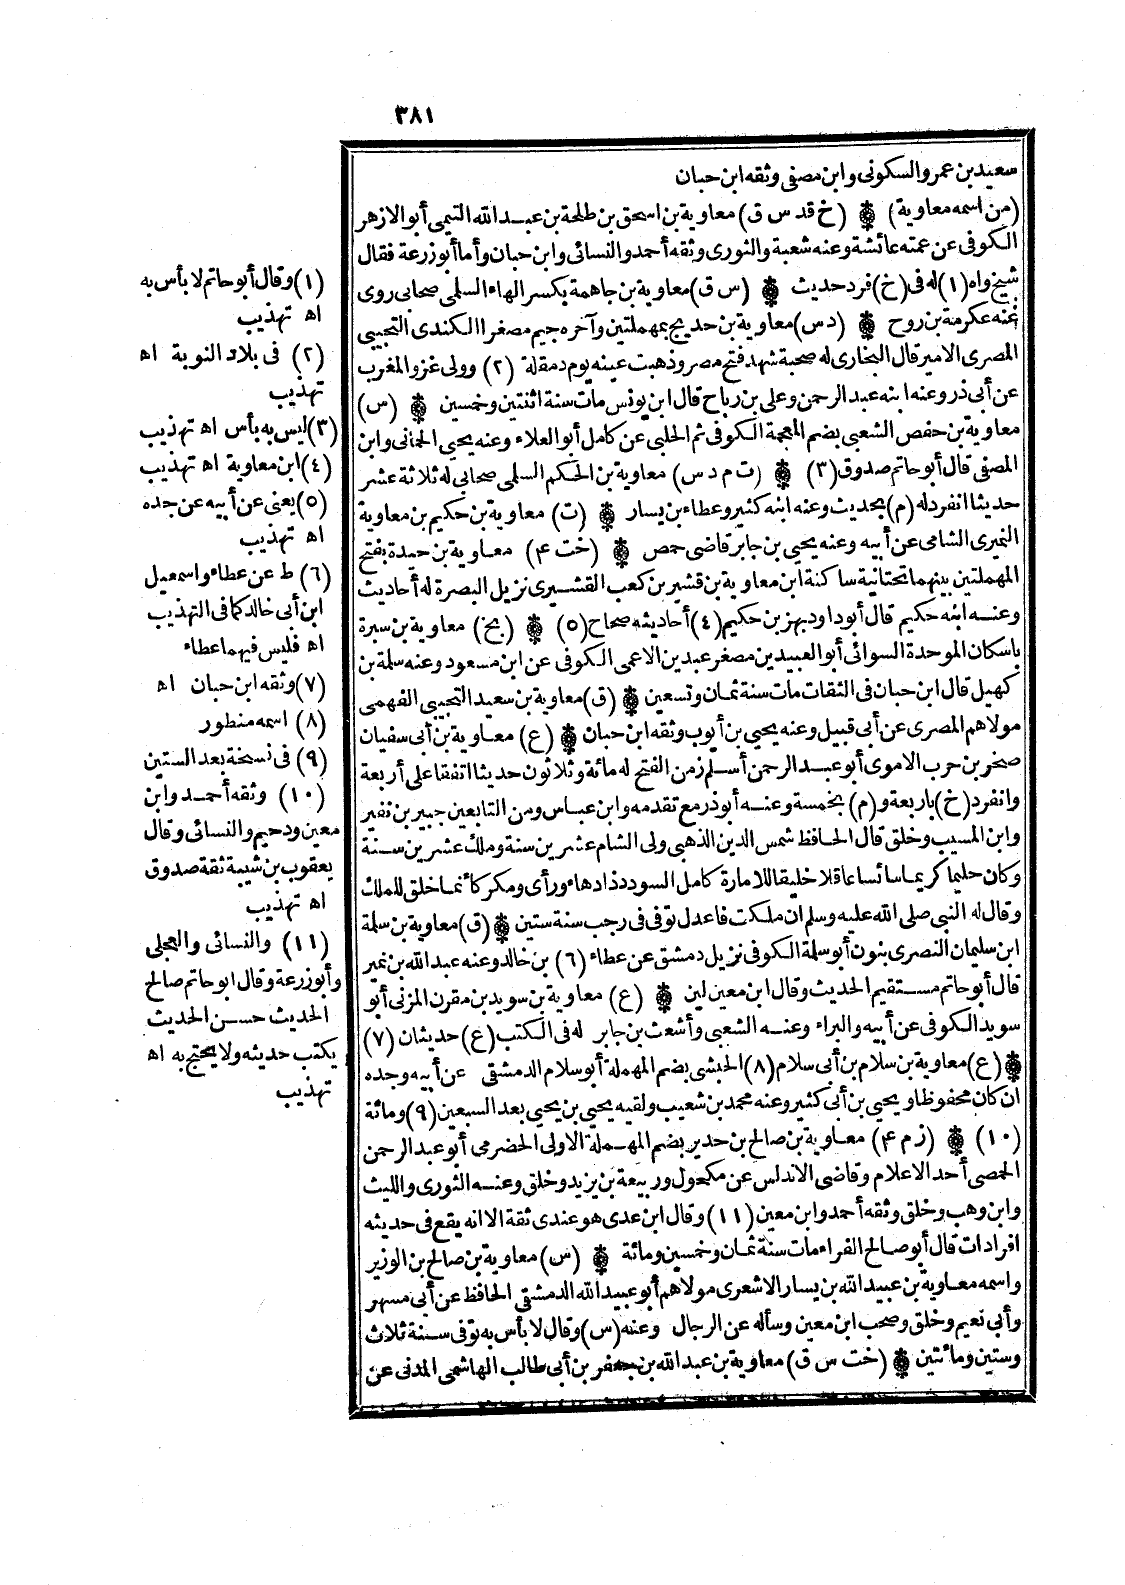 ٣٨١
سعيد بن عمرو السكونى وابن مصفى وثقه ابن حبان
(من اسمه معاوية) (خ قد س ق) معاوية بن اسحق بن طلحة بن عبد الله التيمى أبو الازهر
الكوفى عن عمته عائشة وعنه شعبة والثورى وثقه أحمد والنسائى وابن حبان وأما أبو زرعة فقال
شيخ واه (١) له فى (خ) فرد حديث (س ق) معاوية بن جاهمة بكسر الهاء السلمى صحابى روى
عنه عكرمة بن روح (د س) معاوية بن حديج بمهملتين وآخره جيم مصغرا الكندى التجيبى
المصرى الامير قال البخارى له صحبة شهد فتح مصر وذهبت عينه يوم دمقلة (٢) وولى غزو المغرب
عن أبى ذر وعنه ابنه عبد الرحمن وعلى بن رباح قال ابن يونس مات سنة اثنتين وخمسين (س)
معاوية بن حفص الشعبى بضم المعجمة الكوفى ثم الحلبى عن كامل أبو العلاء وعنه يحيى الحمانى وابن
المصفى قال أبو حاتم صدوق (٣) (ت م د س) معاوية بن الحكم السلمى صحابى له ثلاثة عشر
حديثا انفرد له (م) بحديث وعنه ابنه كثير وعطاء بن يسار (ت) معاوية بن حكيم بن معاوية
النميرى الشامى عن أبيه وعنه يحيى بن جابر قاضى حمص (خت ٤) معاوية بن حيدة بفتح
المهملتين بينهما تحتانية ساكنة ابن معاوية بن قشير بن كعب القشيرى نزيل البصرة له أحاديث
وعنه ابنه حكيم قال أبو داود بهز بن حكيم (٤) أحاديثه صحاح (٥) (بخ) معاوية بن سبرة
باسكان الموحدة السوائى أبو العبيدين مصغر عبدين الاعمى الكوفى عن ابن مسعود وعنه سلمة بن
كهيل قال ابن حبان فى الثقات مات سنة ثمان وتسعين (ق) معاوية بن سعيد التجيبى الفهمى
مولاهم المصرى عن أبى قبيل وعنه يحيى بن أيوب وثقه ابن حبان (ع) معاوية بن أبى سفيان
صخر بن حرب الاموى أبو عبد الرحمن أسلم زمن الفتح له مائة وثلاثون حديثا اتفقا على أربعة
وانفرد (خ) باربعة و (م) بخمسة وعنه أبو ذر مع تقدمه وابن عباس ومن التابعين جبير بن نفير
وابن المسيب وخلق قال الحافظ شمس الدين الذهبى ولى الشام عشرين سنة وملك عشرين سنة
وكان حليما كريما سائسا عاقلا خليقا للامارة كامل السودد ذا دهاء ورأى ومكر كأنما خلق للملك
وقال له النبى صلى الله عليه وسلم ان ملكت فاعدل توفى فى رجب سنة ستين (ق) معاوية بن سلمة
ابن سليمان النصرى بنون أبو سلمة الكوفى نزيل دمشق عن عطاء (٦) بن خالد وعنه عبد الله بن نمير
قال أبو حاتم مستقيم الحديث وقال ابن معين لين (ع) معاوية بن سويد بن مقرن المزنى أبو
سويد الكوفى عن أبيه والبراء وعنه الشعبى وأشعث بن جابر له فى الكتب (ع) حديثان (٧)
(ع) معاوية بن سلام بن أبى سلام (٨) الحبشى بضم المهملة أبو سلام الدمشقى عن أبيه وحده
ان كان محفوظا ويحيى بن أبى كثير وعنه محمد بن شعيب ولقيه يحيى بن يحيى بعد السبعين (٩) ومائة
(١٠) (ز م ٤) معاوية بن صالح بن حدير بضم المهملة الاولى الحضرمى أبو عبد الرحمن
الحمصى أحد الاعلام وقاضى الاندلس عن مكحول وربيعة بن يزيد وخلق وعنه الثورى والليث
وابن وهب وخلق وثقه أحمد وابن معين (١١) وقال ابن عدى هو عندى ثقة الا انه يقع فى حديثه
افرادات قال أبو صالح الفراء مات سنة ثمان وخمسين ومائة (س) معاوية بن صالح بن الوزير
واسمه معاوية بن عبيد الله بن يسار الاشعرى مولاهم أبو عبيد الله الدمشقى الحافظ عن أبى مسهر
وأبى نعيم وخلق وصحب ابن معين وسأله عن الرجال وعنه (س) وقال لا بأس به توفى سنة ثلاث
وستين ومائتين (خت س ق) معاوية بن عبد الله بن جعفر بن أبى طالب الهاشمى المدنى عن
(١) وقال أبو حاتم لا بأس به
اه تهذيب
(٢) فى بلاد النوبة اه
تهذيب
(٣) ليس به بأس اه تهذيب
(٤) ابن معاوية اه تهذيب
(٥) يعنى عن أبيه عن جده
اه تهذيب
(٦) ط عن عطاء واسمعيل
ابن أبى خالد كما فى التهذيب
اه فليس فيهما عطاء
(٧) وثقه ابن حبان اه
(٨) اسمه منطور
(٩) فى نسخة بعد الستين
(١٠) وثقه أحمد وابن
معين ودحيم والنسائى وقال
يعقوب بن شيبة ثقة صدوق
اه تهذيب
(١١) والنسائى والعجلى
وأبو زرعة وقال ابو حاتم صالح
الحديث حسن الحديث
يكتب حديثه ولا يحتج به اه
تهذيب